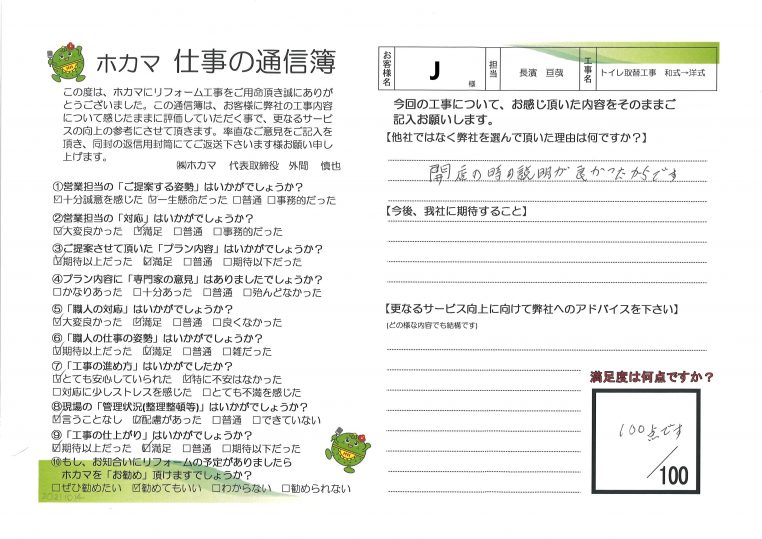 ホカマ 仕事の通信簿
この度は、ホカマにリフォーム工事をご用命頂き誠にありが
とうございました。この通信簿は、お客様に弊社の工事内容
について感じたままに評価していただく事で、更なるサービ
スの向上の参考にさせて頂きます。率直なご意見をご記入を
頂き、同封の返信用封筒にてご返送下さいます様お願い申し
上げます。
㈱ホカマ 代表取締役 外間 慎也
①営業担当の「ご提案する姿勢」はいかがでしょうか?
☑十分誠意を感じた ☑一生懸命だった □普通 □事務的だった
②営業担当の「対応」はいかがでしょうか?
☑大変良かった ☑満足 □普通 □事務的だった
③ご提案させて頂いた「プラン内容」はいかがでしょうか?
☑期待以上だった ☑満足 □普通 □期待以下だった
④プラン内容に「専門家の意見」はありましたでしょうか?
□かなりあった □十分あった □普通 □殆んどなかった
⑤「職人の対応」はいかがでしょうか?
☑大変良かった ☑満足 □普通 □良くなかった
⑥「職人の仕事の姿勢」はいかがでしょうか?
☑期待以上だった ☑満足 □普通 □雑だった
⑦「工事の進め方」はいかがでしたか?
☑とても安心していられた ☑特に不安はなかった
□対応に少しストレスを感じた □とても不満を感じた
⑧現場の「管理状況(整理整頓等)」はいかがでしょうか?
☑言うことなし ☑配慮があった □普通 □できていない
⑨「工事の仕上がり」はいかがでしょうか?
☑期待以上だった ☑満足 □普通 □期待以下だった
⑩もし、お知合いにリフォームの予定がありましたら
ホカマを「お勧め」頂けますでしょうか?
□ぜひ勧めたい ☑勧めてもいい □わからない □勧められない
20211014
お客様名 J 様 担当 長濱 亘哉 工事名 トイレ取替工事 和式→洋式
今回の工事について、お感じ頂いた内容をそのままご
記入お願いします。
【他社ではなく弊社を選んで頂いた理由は何ですか?】
開店の時の説明が良かったからです
【今後、我社に期待すること】
【更なるサービス向上に向けて弊社へのアドバイスを下さい】
(どの様な内容でも結構です)
満足度は何点ですか?
100点です
/100